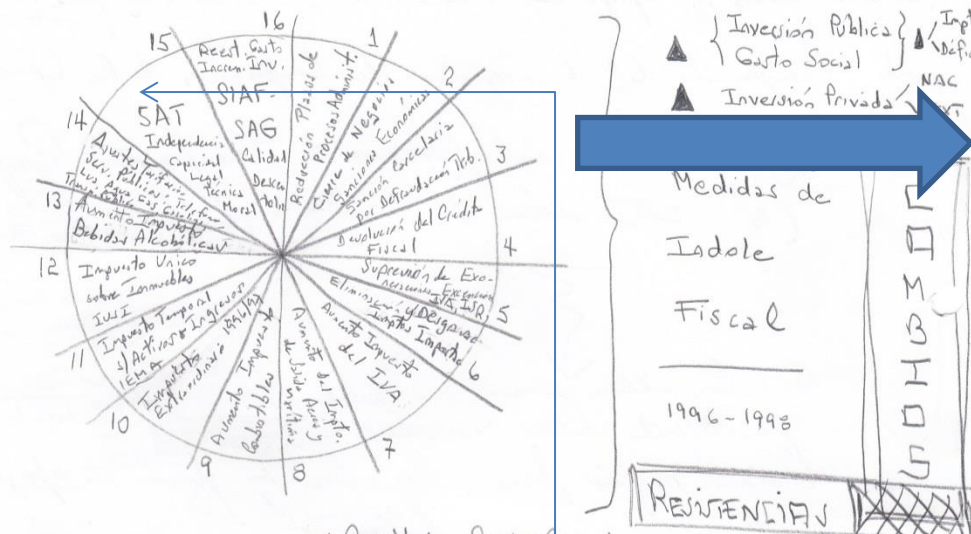 16
1
2
3
4
5
6
7
8
9
10
11
12
13
14
15
Reducción Plazos de
Procesos Administ.
Cierre de Negocios
Sanciones Económicas
Sanción carcelaria
por Defraudación Trib.
Devolución del Crédito
Fiscal
Supresión de Exo-
neraciones
IVA, ISR,
Eliminación y Desgravac
Imptos Import
Aumento Impuesto
del IVA
Aumento del Impto.
de Salida Aérea y
marítima
Aumento Impuesto
Combustibles
Impuesto
Extraordinario 1996/97
Impuesto Temporal
s/ Activos Ingresos
IEMA
Impuesto Unico
sobre Inmuebles
IUSI
Aumento Impuesto
Bebidas Alcohólicas
Ajustes Tarifarios
Serv. Públicos: Teléfono
Luz Agua Gas
SAT
Independencia
Capacidad
Legal
Técnica
Moral
Reest. Gasto
Increm. Inv.
SIAF-
SAG
Calidad
Inversión Pública
Gasto Social
Inversión Privada
NAC
Medidas de
Indole
Fiscal
1996-1998
CAMBIOS
RESISTENCIAS